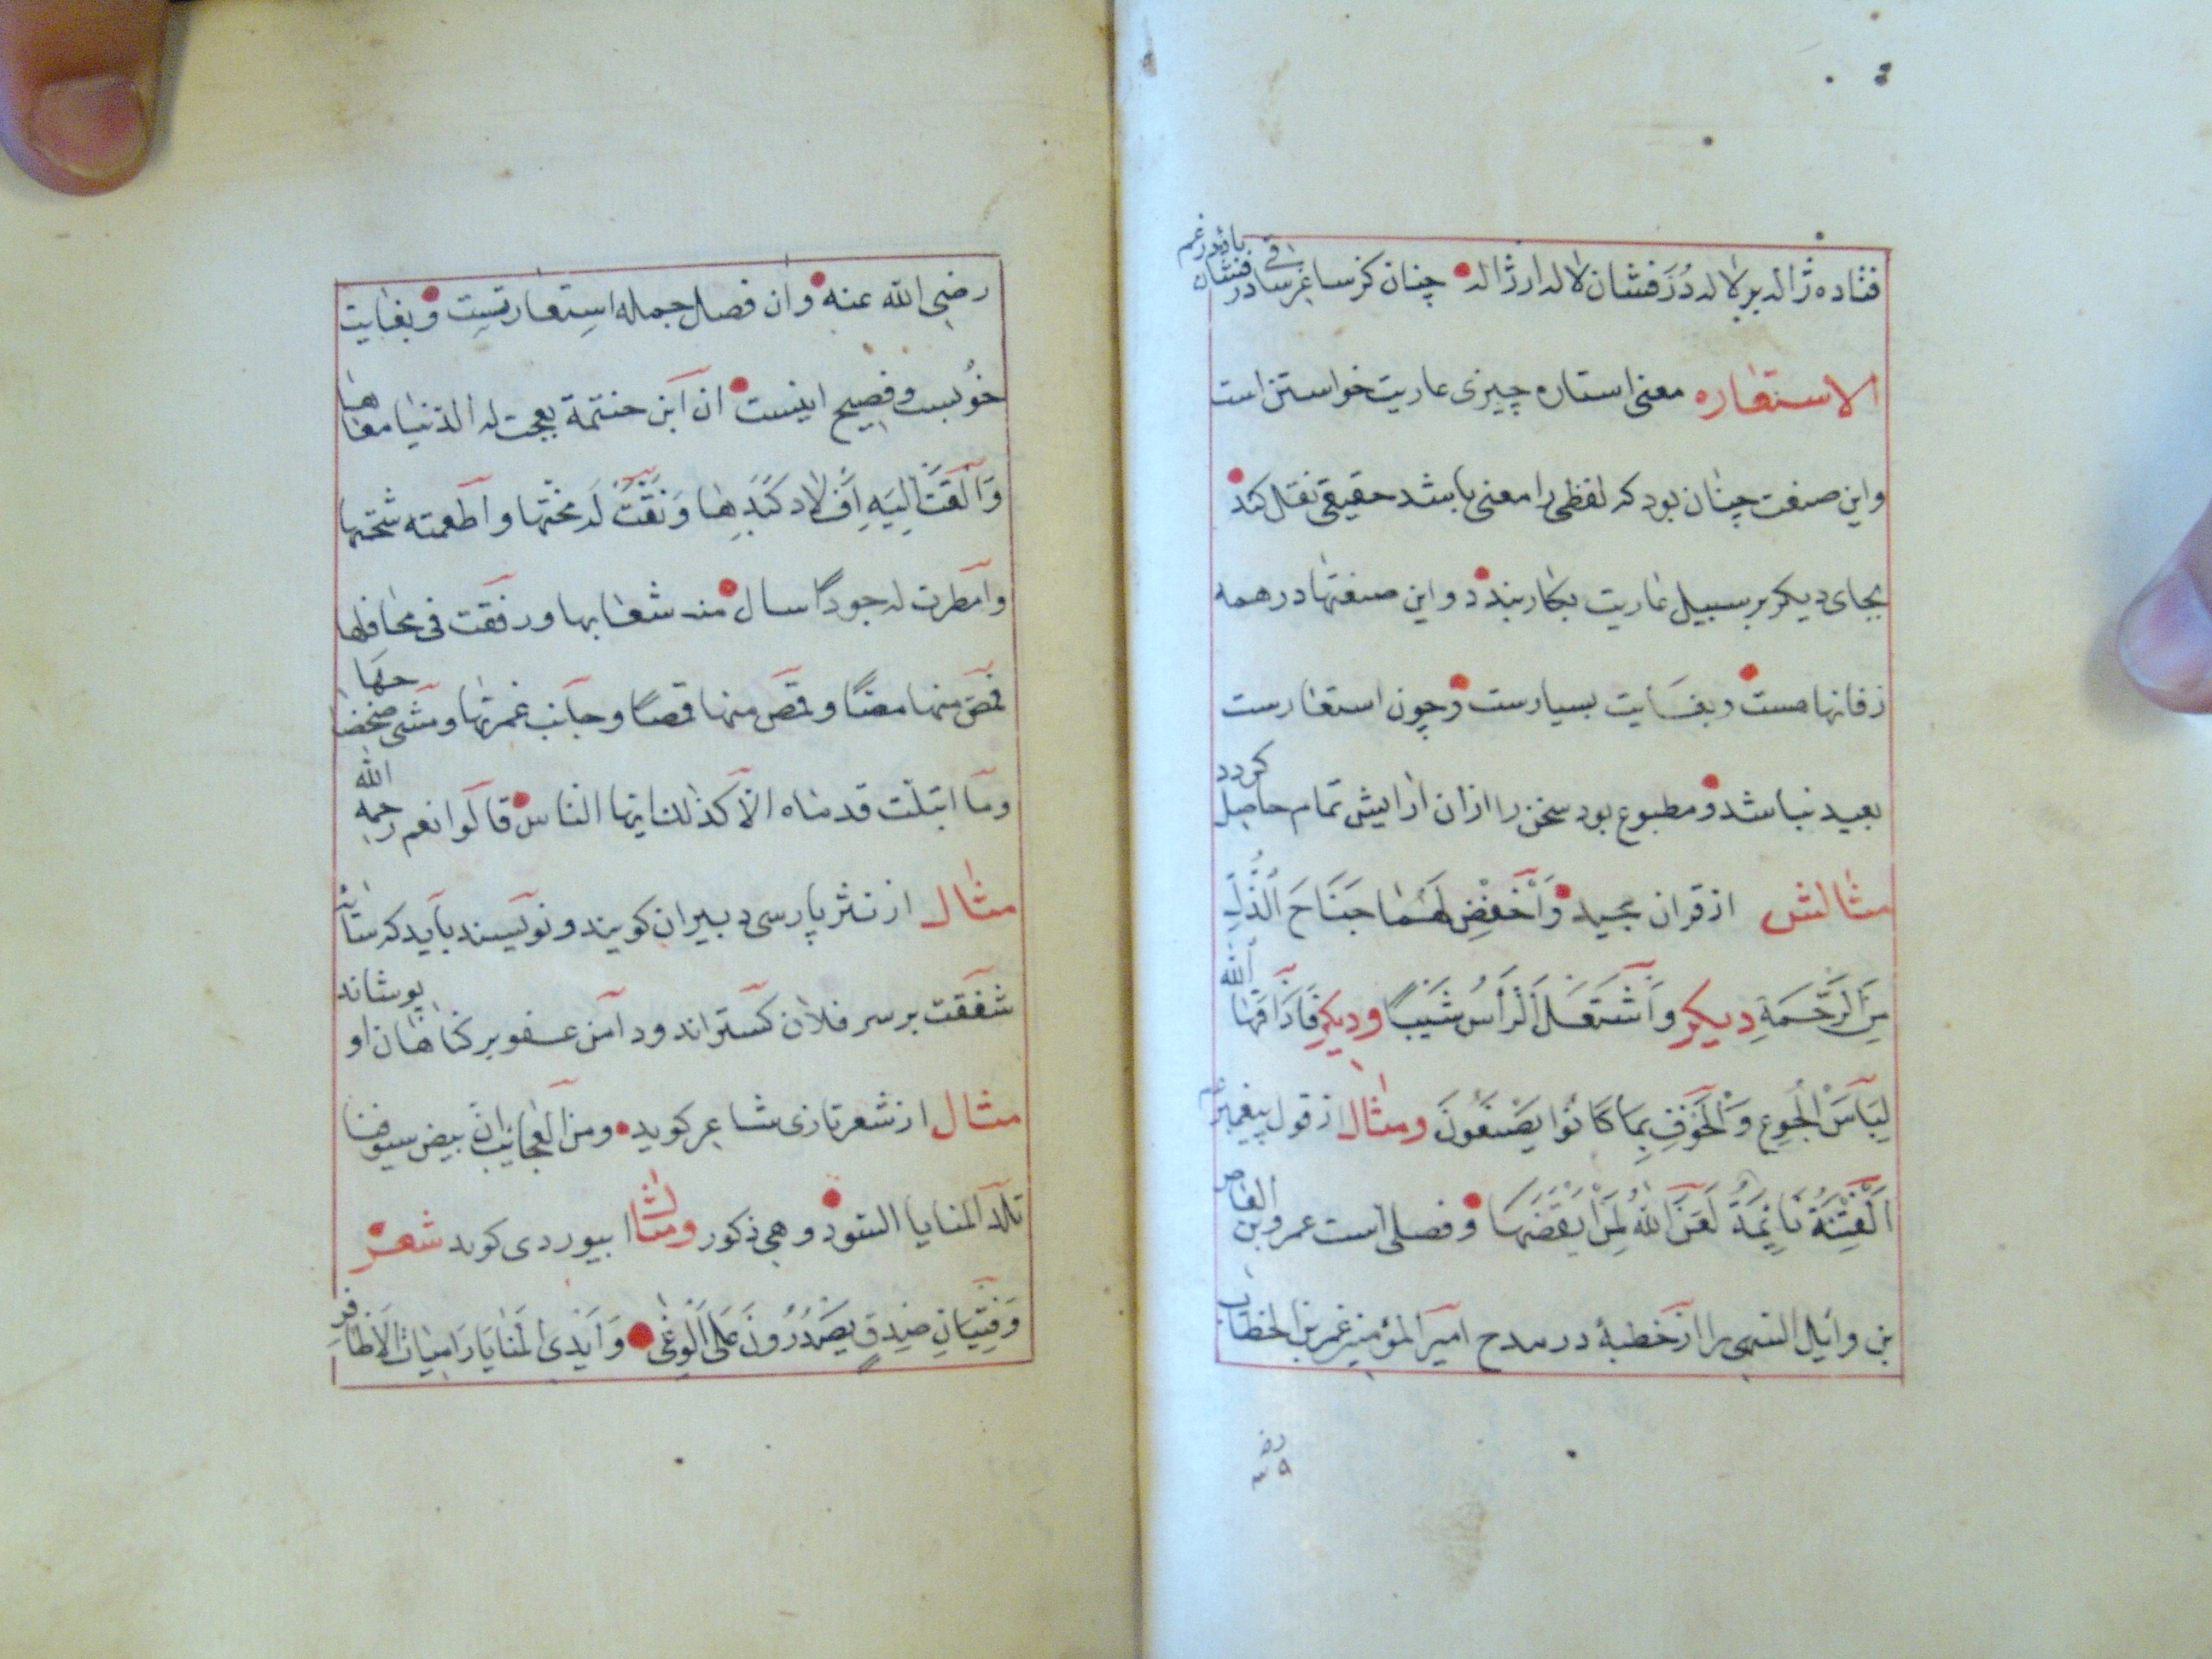 فتاده ژاله بر لاله دُرَ فشان لاله از ژاله چنان کز ساغر ساقی در فشان باید رغم
الاستعاره معنی استاره چیزی عاریت خواستن است
واین صنعت چنان بود که لفظی را معنی باشد حقیقی نقل کند
بجای دیکر بر سبیل عاریت بکار بندد و این صنعتها در همه
زفانها هست و بغایت بسیارست وچون استعارست
بعید نباشد و مطبوع بود سخن را ازان ارایش تمام حاصل کردد
مثالش از قران مجید وَاَخْفِضْ لَهُمَا جَنَاحَ الْذُّلِّ
مِنَ الرَّحْمَةِ دیکر وَاَشْتَعَلَ الْرَأسُ شَیْبًا ودیکر فَاَذَاقَهَا الله
لِبَاسَ الْجُوعِ وَالْخَوْفِ بِمَا کَانُوا یَصْنَعُونَ ومثال از قول پیغمبر عم
اَلْفِتْنَةُ نَایِمَةُ لَعَنَ اللهُ لِمَنْ اَیْقَضَهَا وفصلی است عمرو بن العاص
بن وایل السهمی را از خطبهٔ در مدح امیر المؤمنین عمر بن الخطاب
رضی الله عنه وان فصل جمله استعارتست و بغایت
خوبست و فصیح اینست ان ابن حنتمة بعجت له الدنیا معاها
وَاَلْقَتْ اِلَیْهِ اَفْلاد کَبَدِهَا وَنَقَّتْ لَه مختها واطعمته شحمتها
وامطرت له جودًا سال منه شعابها ورفقت فی محافلها
فمصّ منها مصًّا و قمص منها قمصًا وجانب غمرتها ومشی ضحضاحها
وما ابتلت قدماه الا کذلک ایها الناس قالوا نعم رحمه الله
مثال از نثر پارسی دبیران کویند و نویسند باید که ستارهٔ
شفقت بر سر فلان کستراند ودامن عفو بر کناهان او پوشاند
مثال از شعر تازی شاعر کوید ومن العجایب انّ بیض سیوفنا
تلد المنایا السود وهی ذکور ومثال ابیوردی کوید شعر
وَفِتْیَانِ صِدِقٍ یَصْدُرُونَ عَلَی الْوَغٰی وَاَیْدِی المَنَایَا رَامِیَات الاَظَافر
رض